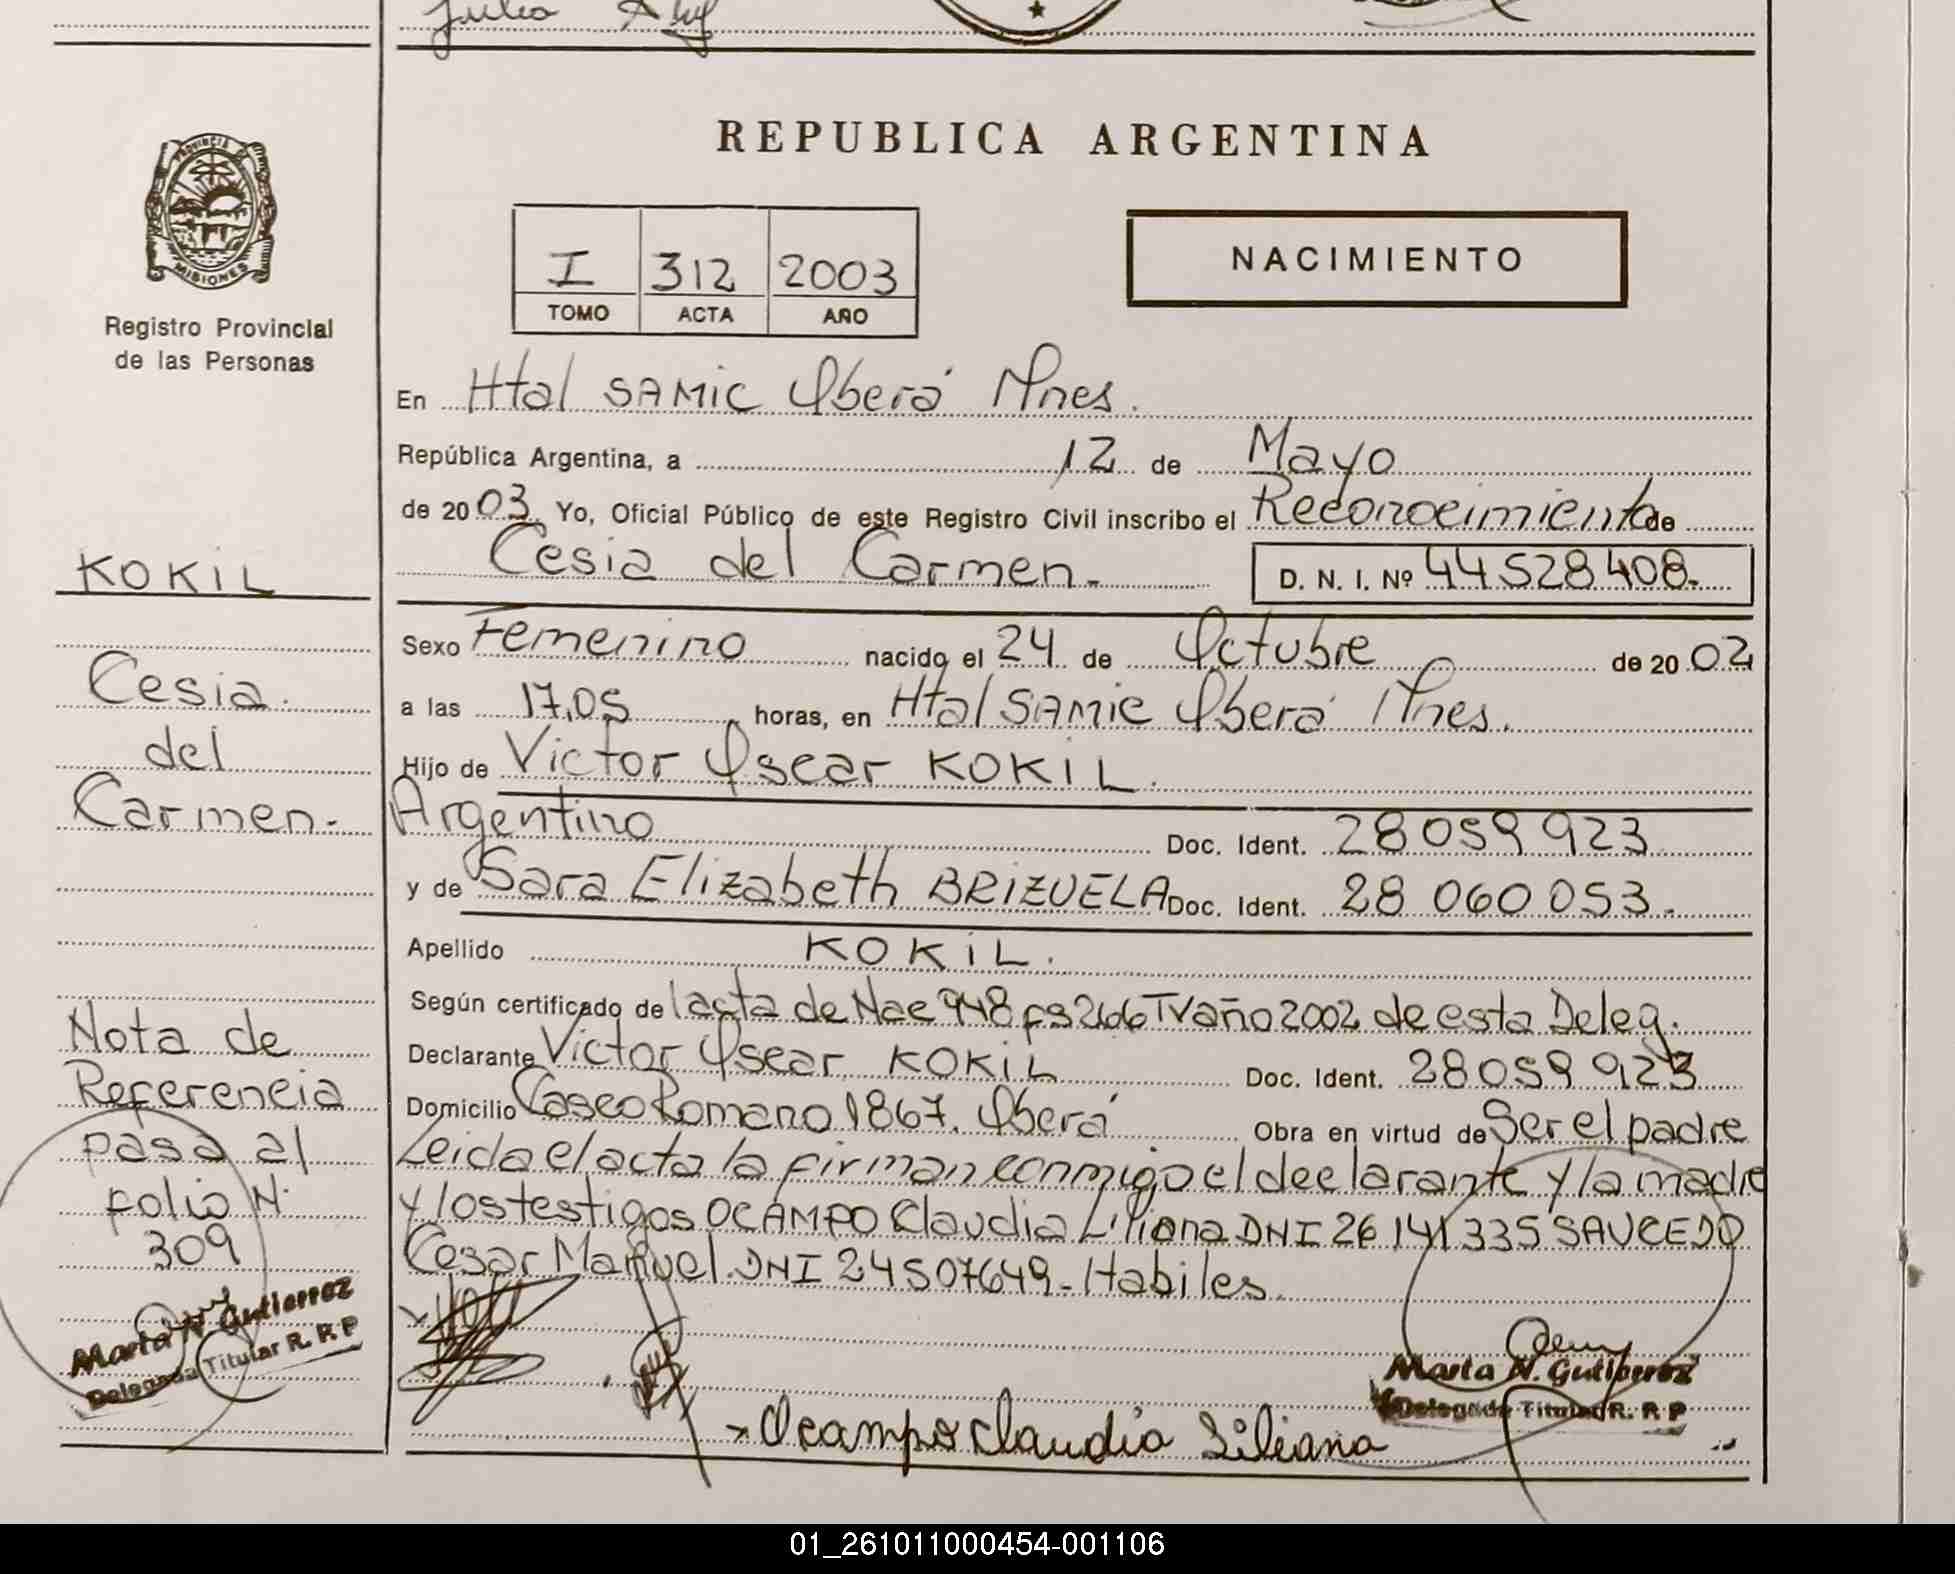 Julio
REPUBLICA ARGENTINA
PROVINCIA DE
MISIONES
Registro Provincial
de las Personas
I 312 2003
TOMO ACTA AÑO
NACIMIENTO
En Htal SAMIC Oberá Mnes.
República Argentina, a 12 de Mayo
de 2003 Yo, Oficial Público de este Registro Civil inscribo el Reconocimiento de
Cesia del Carmen.- D. N. I. Nº 44.528.408.
Sexo Femenino nacido el 24 de Octubre de 2002
a las 17,05 horas, en Htal SAMIC Oberá Mnes.
Hijo de Victor Oscar KOKIL.
Argentino Doc. Ident. 28 059 923
y de Sara Elizabeth BRIZUELA Doc. Ident. 28 060 053.
Apellido KOKIL.
Según certificado de lacta de Nac 948 fs 266 TV año 2002 de esta Deleg.
Declarante Victor Oscar KOKIL Doc. Ident. 28 059 923
Domicilio Romano 1867. Oberá Obra en virtud de Ser el padre
Leida el acta la firman conmigo el declarante y la madre
y los testigos OCAMPO Claudia Liliana DNI 26 141 335 SAUCEDO
Cesar Manuel. DNI 24507649- Habiles.
Ocampo Claudia Liliana
Marta N. Gutierrez
Delegada Titular R. R. P
KOKIL
Cesia.
del
Carmen.-
Nota de
Referencia
pasa al
folio N.
309
Marta N Gutierrez
Delegada Titular R. R. P
01_261011000454-001106